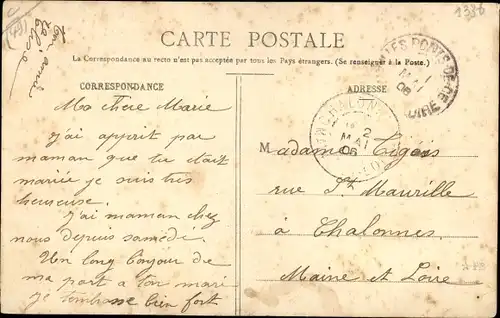 1336
(49)
ton amie
Elise
CARTE POSTALE
La Correspondance au recto n'est pas acceptée par tous les Pays étrangers. (Se renseigner à la Poste.)
CORRESPONDANCE
Ma Chere Marie
j'ai apprit par
maman que tu était
mariée je suis très
heureuse.
J'ai maman chez
nous depuis samedi.
Un long bonjour de
ma part a ton mari
je t'embrasse bien fort
ADRESSE
LES PONTS-DE-CÉ
MAI
06
LOIRE
CHALONNES
2
MAI
06
Madame
rue St Maurille
à Chalonnes
Maine et Loire